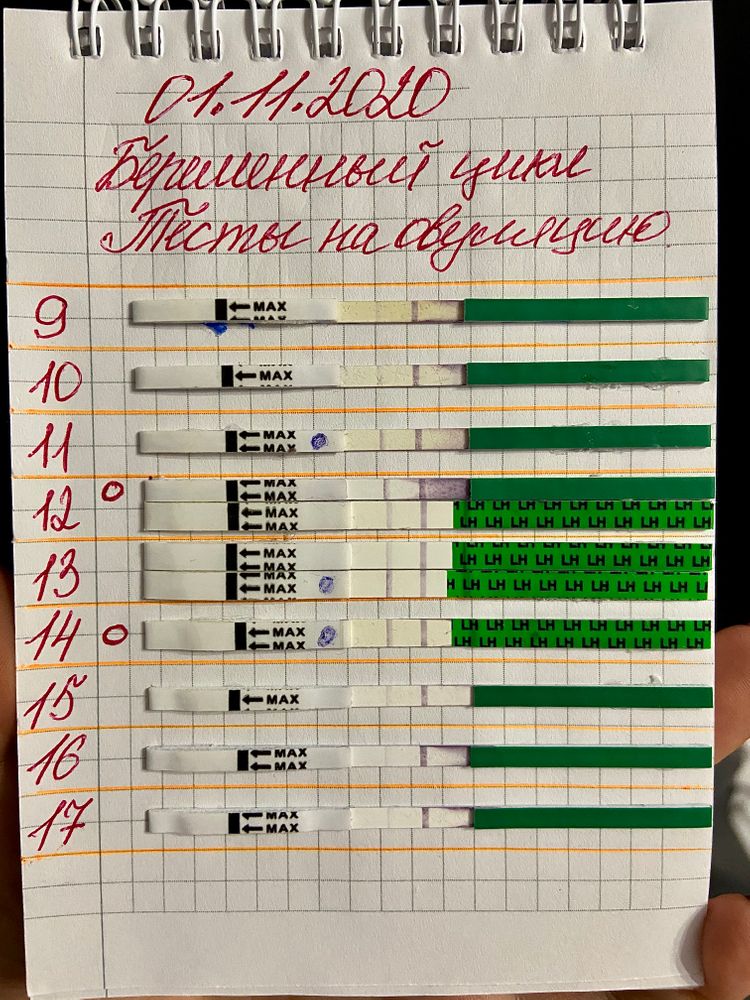 01.11.2020
Беременный цикл
Тесты на овуляцию
9 ← MAX
← MAX
10 ← MAX
11 ← MAX
← MAX
12 ← MAX
← MAX
← MAX LH LH LH LH LH LH LH LH LH LH
← MAX LH LH LH LH LH LH LH LH LH LH
13 ← MAX LH LH LH LH LH LH LH LH LH LH
← MAX
← MAX LH LH LH LH LH LH LH LH LH LH
14 ← MAX LH LH LH LH LH LH LH LH LH LH
← MAX LH LH LH LH LH LH LH LH LH LH
15 ← MAX
16 ← MAX
← MAX
17 ← MAX
← MAX